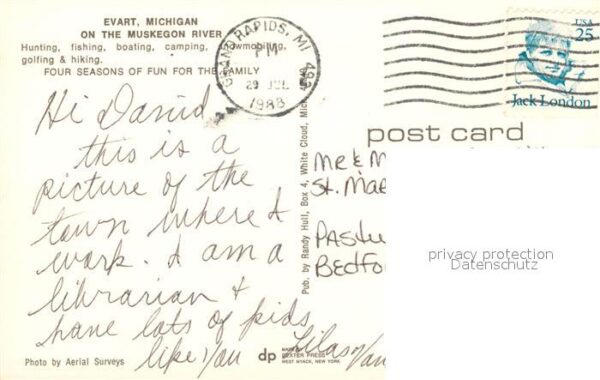 EVART, MICHIGAN
ON THE MUSKEGON RIVER
Hunting, fishing, boating, camping, snowmobiling,
golfing & hiking.
FOUR SEASONS OF FUN FOR THE FAMILY
GRAND RAPIDS, MI
PM
29 JUL
1988
USA
25
Jack London
Hi David
this is a
picture of the
town where I
work. I am a
librarian &
have lots of kids
like you
Photo by Aerial Surveys
Pub. by Randy Hull, Box 4, White Cloud, Mich.
dp
DEXTER PRESS
WEST NYACK, NEW YORK
post card
Mr & M
St. Mae
Bedfo
privacy protection
Datenschutz